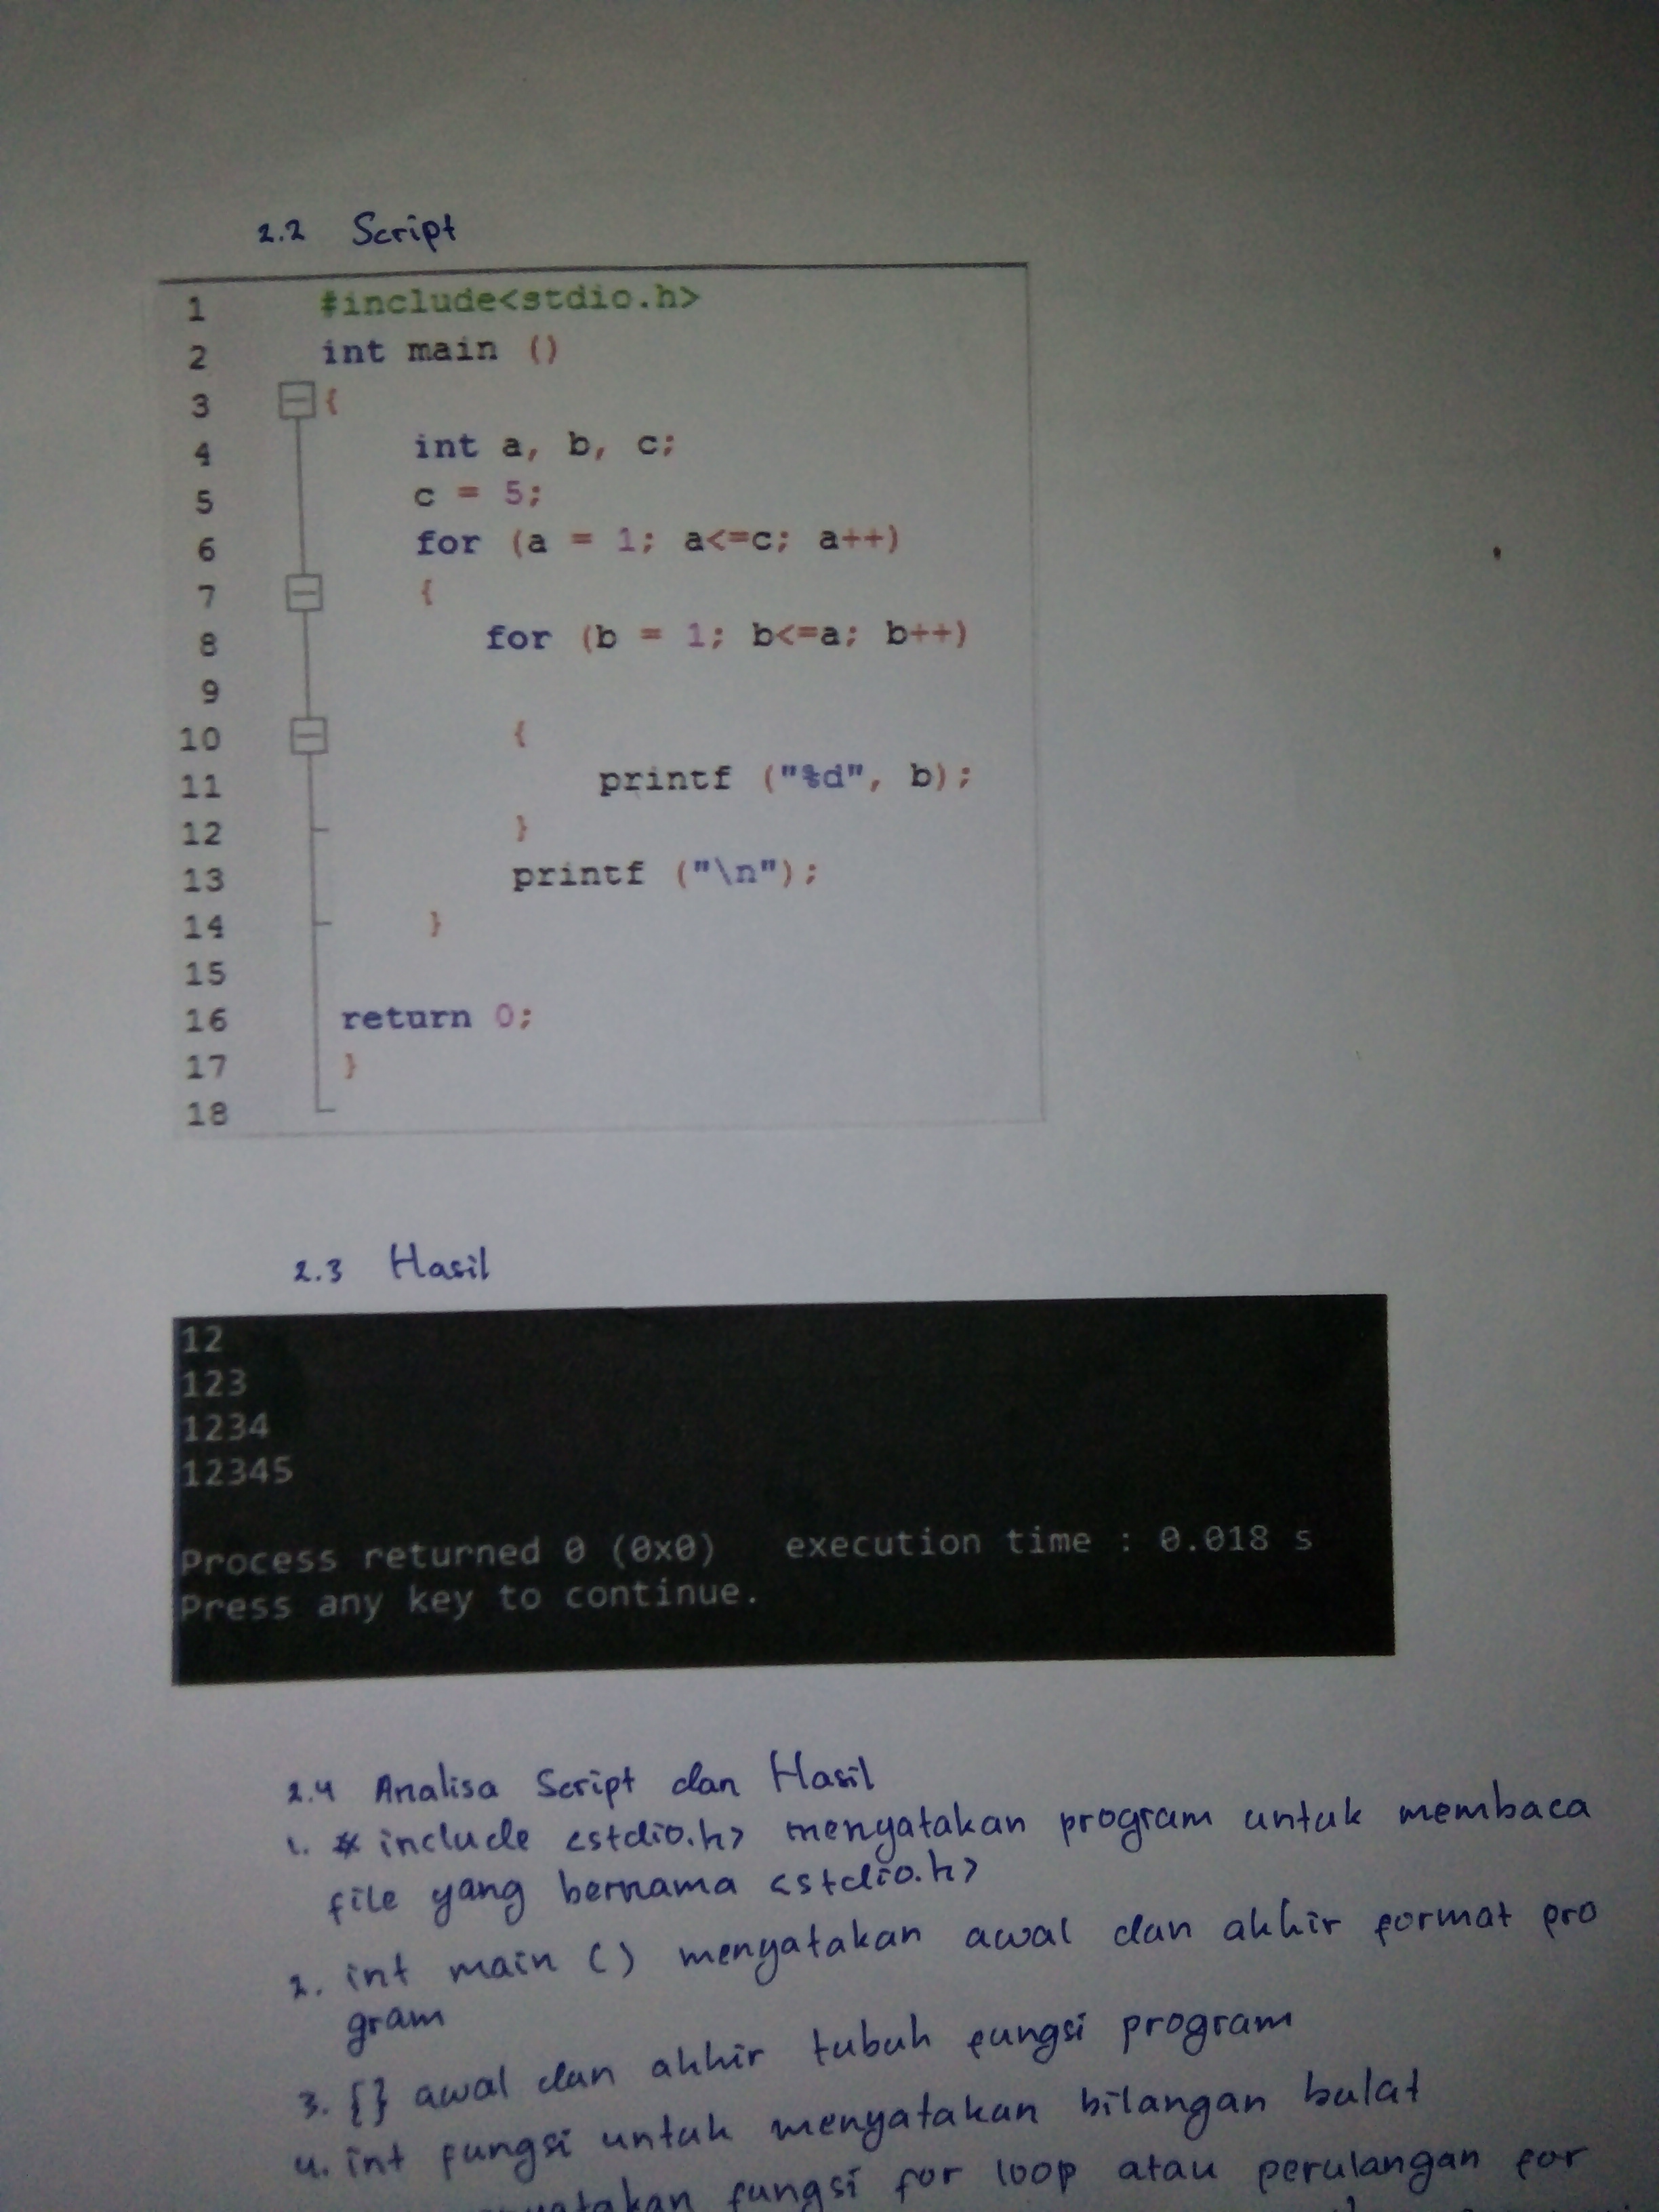 2.2 Script
1 #include<stdio.h>
2 int main ()
3 {
4 int a, b, c;
5 c = 5;
6 for (a = 1; a<=c; a++)
7 {
8 for (b = 1; b<=a; b++)
9
10 {
11 printf ("%d", b);
12 }
13 printf ("\n");
14 }
15
16 return 0;
17 }
18
2.3 Hasil
12
123
1234
12345
Process returned 0 (0x0) execution time : 0.018 s
Press any key to continue.
2.4 Analisa Script dan Hasil
1. # include <stdio.h> menyatakan program untuk membaca
file yang bernama <stdio.h>
2. int main () menyatakan awal dan akhir format pro
gram
3. {} awal dan akhir tubuh fungsi program
4. int fungsi untuk menyatakan bilangan bulat
fungsi for loop atau perulangan for